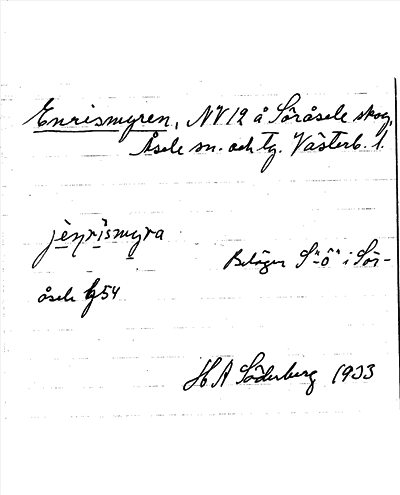 Enrismyren, NV 12 å Söråsele skog,
Åsele sn. och tg. Västerb. l.
jènrismyra
Belägen S"-Ö" i Sör-
åsele G54
H A Söderberg 1933